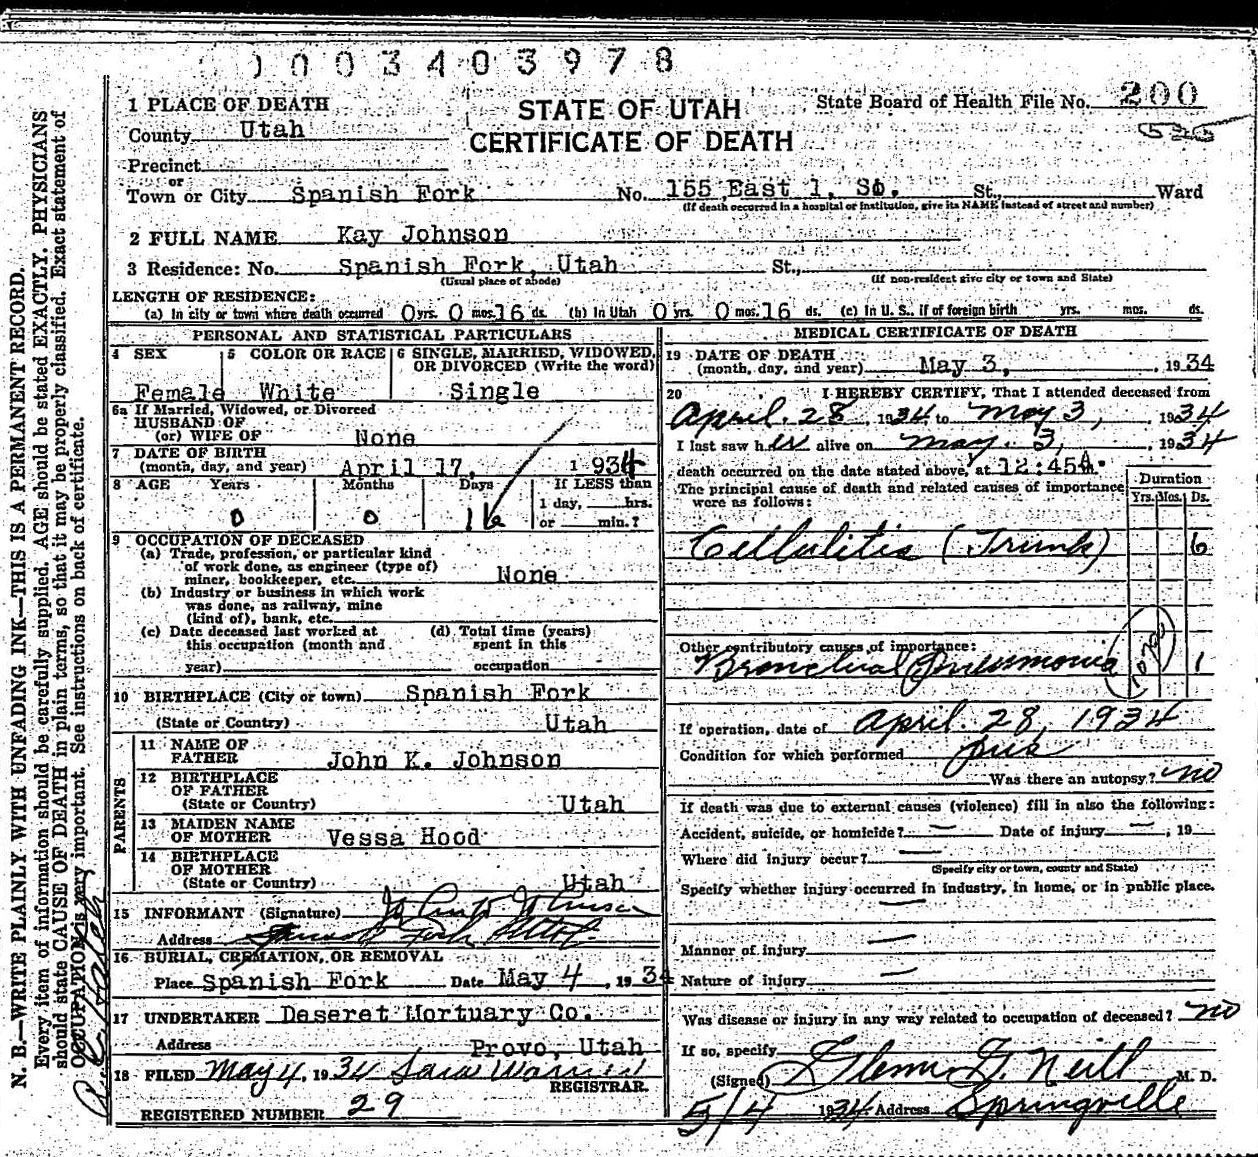 0003403978
STATE OF UTAH
CERTIFICATE OF DEATH
State Board of Health File No. 200
1 PLACE OF DEATH
County Utah
Precinct
or
Town or City Spanish Fork No. 155 East 1, So. St., Ward
(If death occurred in a hospital or institution, give its NAME instead of street and number)
2 FULL NAME Kay Johnson
3 Residence: No. Spanish Fork, Utah St.,
(Usual place of abode) (If non-resident give city or town and State)
LENGTH OF RESIDENCE:
(a) In city or town where death occurred 0 yrs. 0 mos. 16 ds. (b) In Utah 0 yrs. 0 mos. 16 ds. (c) In U. S. if of foreign birth yrs. mos. ds.
PERSONAL AND STATISTICAL PARTICULARS
4 SEX 5 COLOR OR RACE 6 SINGLE, MARRIED, WIDOWED,
OR DIVORCED (Write the word)
Female White Single
6a If Married, Widowed, or Divorced
HUSBAND OF
(or) WIFE OF None
7 DATE OF BIRTH
(month, day, and year) April 17, 1934
8 AGE Years Months Days If LESS than
1 day, hrs.
0 0 16 or min.?
9 OCCUPATION OF DECEASED
(a) Trade, profession, or particular kind
of work done, as engineer (type of)
miner, bookkeeper, etc. None
(b) Industry or business in which work
was done, as railway, mine
(kind of), bank, etc.
(c) Date deceased last worked at (d) Total time (years)
this occupation (month and spent in this
year) occupation
10 BIRTHPLACE (City or town) Spanish Fork
(State or Country) Utah
PARENTS
11 NAME OF
FATHER John K. Johnson
12 BIRTHPLACE
OF FATHER
(State or Country) Utah
13 MAIDEN NAME
OF MOTHER Vessa Hood
14 BIRTHPLACE
OF MOTHER
(State or Country) Utah
15 INFORMANT (Signature)
Address Spanish Fork Utah
16 BURIAL, CREMATION, OR REMOVAL
Place Spanish Fork Date May 4, 1934
17 UNDERTAKER Deseret Mortuary Co.
Address Provo, Utah
18 FILED May 4, 1934 Sara Warner
REGISTRAR.
REGISTERED NUMBER 29
MEDICAL CERTIFICATE OF DEATH
19 DATE OF DEATH
(month, day, and year) May 3, , 1934
20 I HEREBY CERTIFY, That I attended deceased from
April 28 1934 to May 3, , 1934
I last saw her alive on May 3, , 1934
death occurred on the date stated above, at 12:45A.
The principal cause of death and related causes of importance
were as follows:
Duration
Yrs. Mos. Ds.
Cellulitis (Trunk) 6
Other contributory causes of importance:
Bronchial Pneumonia 1
If operation, date of April 28, 1934
Condition for which performed pus
Was there an autopsy? no
If death was due to external causes (violence) fill in also the following:
Accident, suicide, or homicide? — Date of injury — , 19
Where did injury occur? —
(Specify city or town, county and State)
Specify whether injury occurred in industry, in home, or in public place.
—
Manner of injury —
Nature of injury —
Was disease or injury in any way related to occupation of deceased? no
If so, specify
(Signed) Glenn G. Neill M. D.
5/4 1934 Address Springville
N. B.—WRITE PLAINLY WITH UNFADING INK—THIS IS A PERMANENT RECORD.
Every item of information should be carefully supplied. AGE should be stated EXACTLY. PHYSICIANS
should state CAUSE OF DEATH in plain terms, so that it may be properly classified. Exact statement of
OCCUPATION is very important. See instructions on back of certificate.